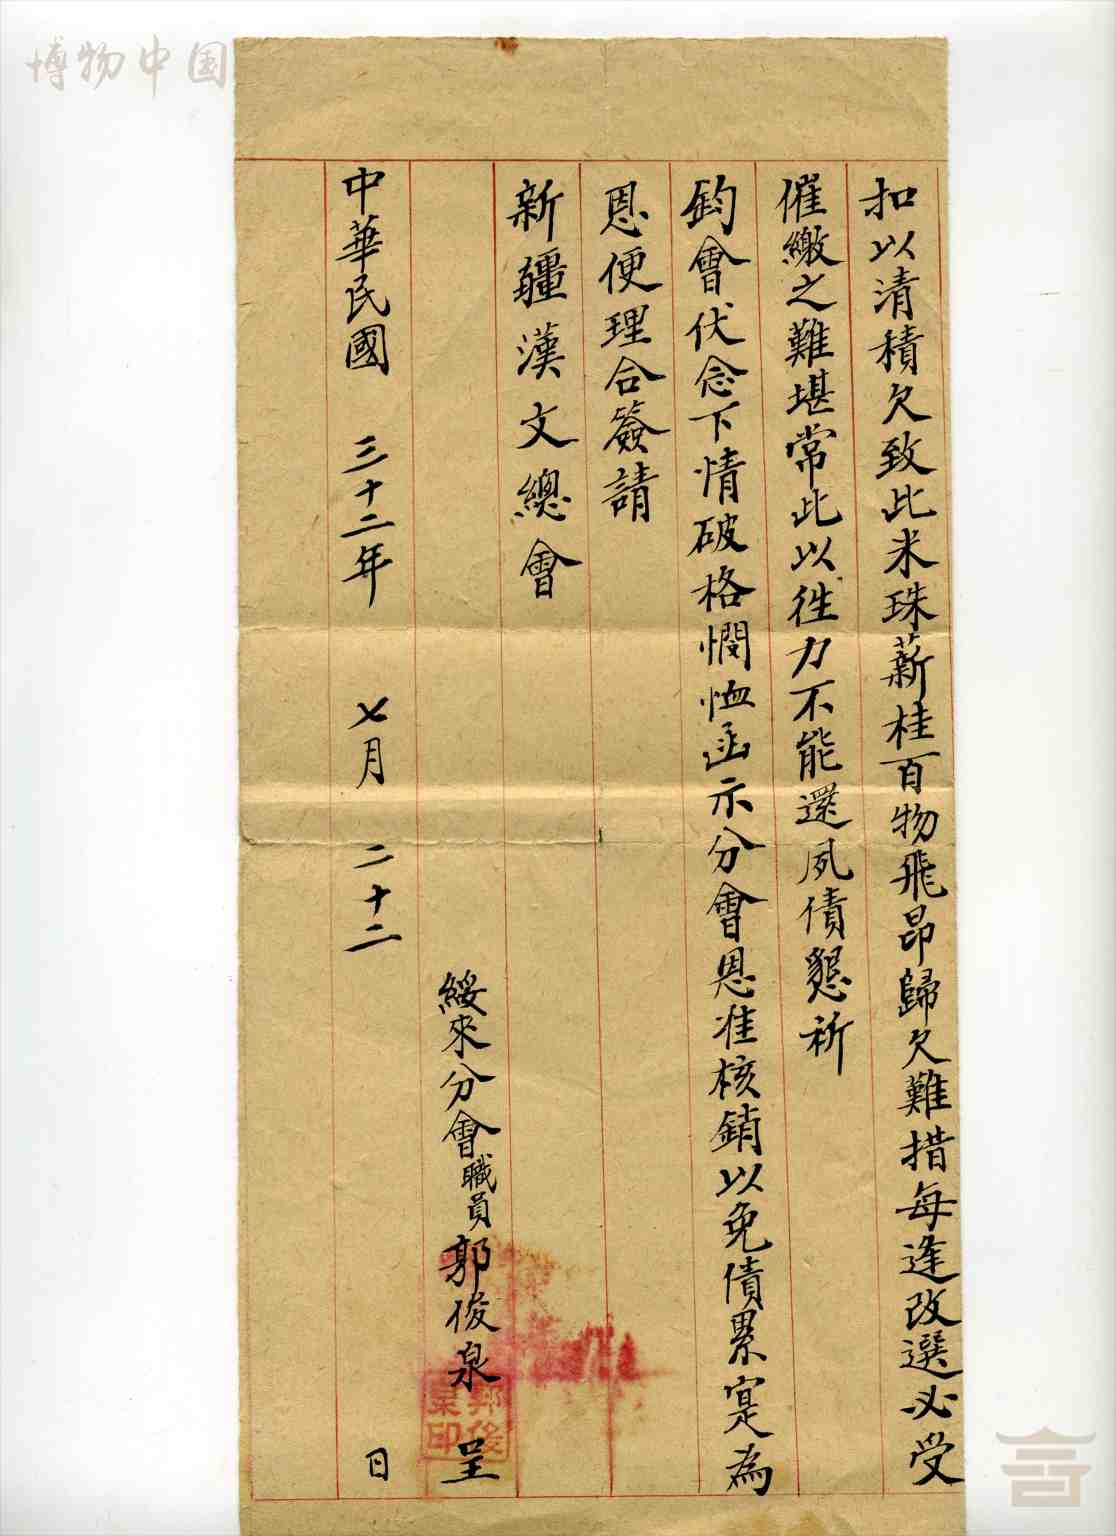 博物中国
扣以清積欠致此米珠薪桂百物飛昂歸欠難措每逢改選必受
催繳之難堪常此以徃力不能還夙債懇祈
鈞會伏念下情破格憫恤函示分會恩准核銷以免債累寔為
恩便理合簽請
新疆漢文總會
綏來分會職員郭俊泉 呈
郭俊泉印
中華民國 三十二年 七月 二十二 日